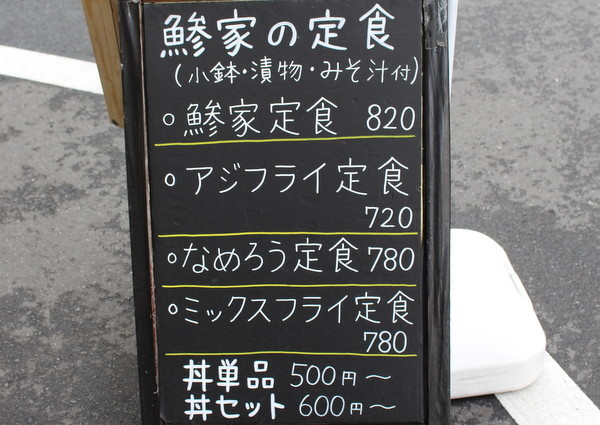 鯵家の定食
(小鉢・漬物・みそ汁付)
○鯵家定食 820
○アジフライ定食
720
○なめろう定食 780
○ミックスフライ定食
780
丼単品 500円〜
丼セット 600円〜